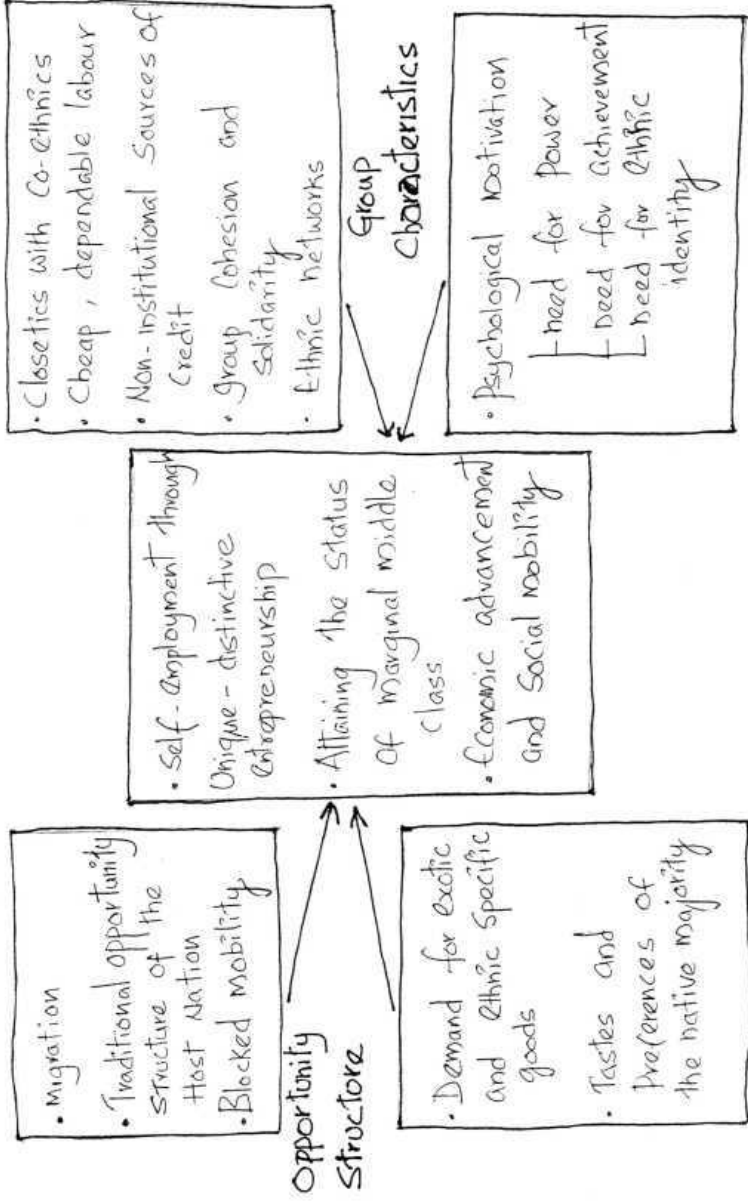 • Migration
• Traditional opportunity
structure of the
Host Nation
• Blocked Mobility
Opportunity
Structore
• Demand for exotic
and ethnic specific
goods
• Tastes and
Preferences of
the native majority
• Self-employment through
Unique-distinctive
entrepreneurship
• Attaining the status
of marginal middle
class
• Economic advancement
and social mobility
• Closetics with Co-ethnics
• Cheap, dependable labour
• Non-institutional Sources of
Credit
• Group Cohesion and
Solidarity
• Ethnic networks
Group
Characteristics
• Psychological Motivation
need for power
need for achievement
need for ethnic
identity